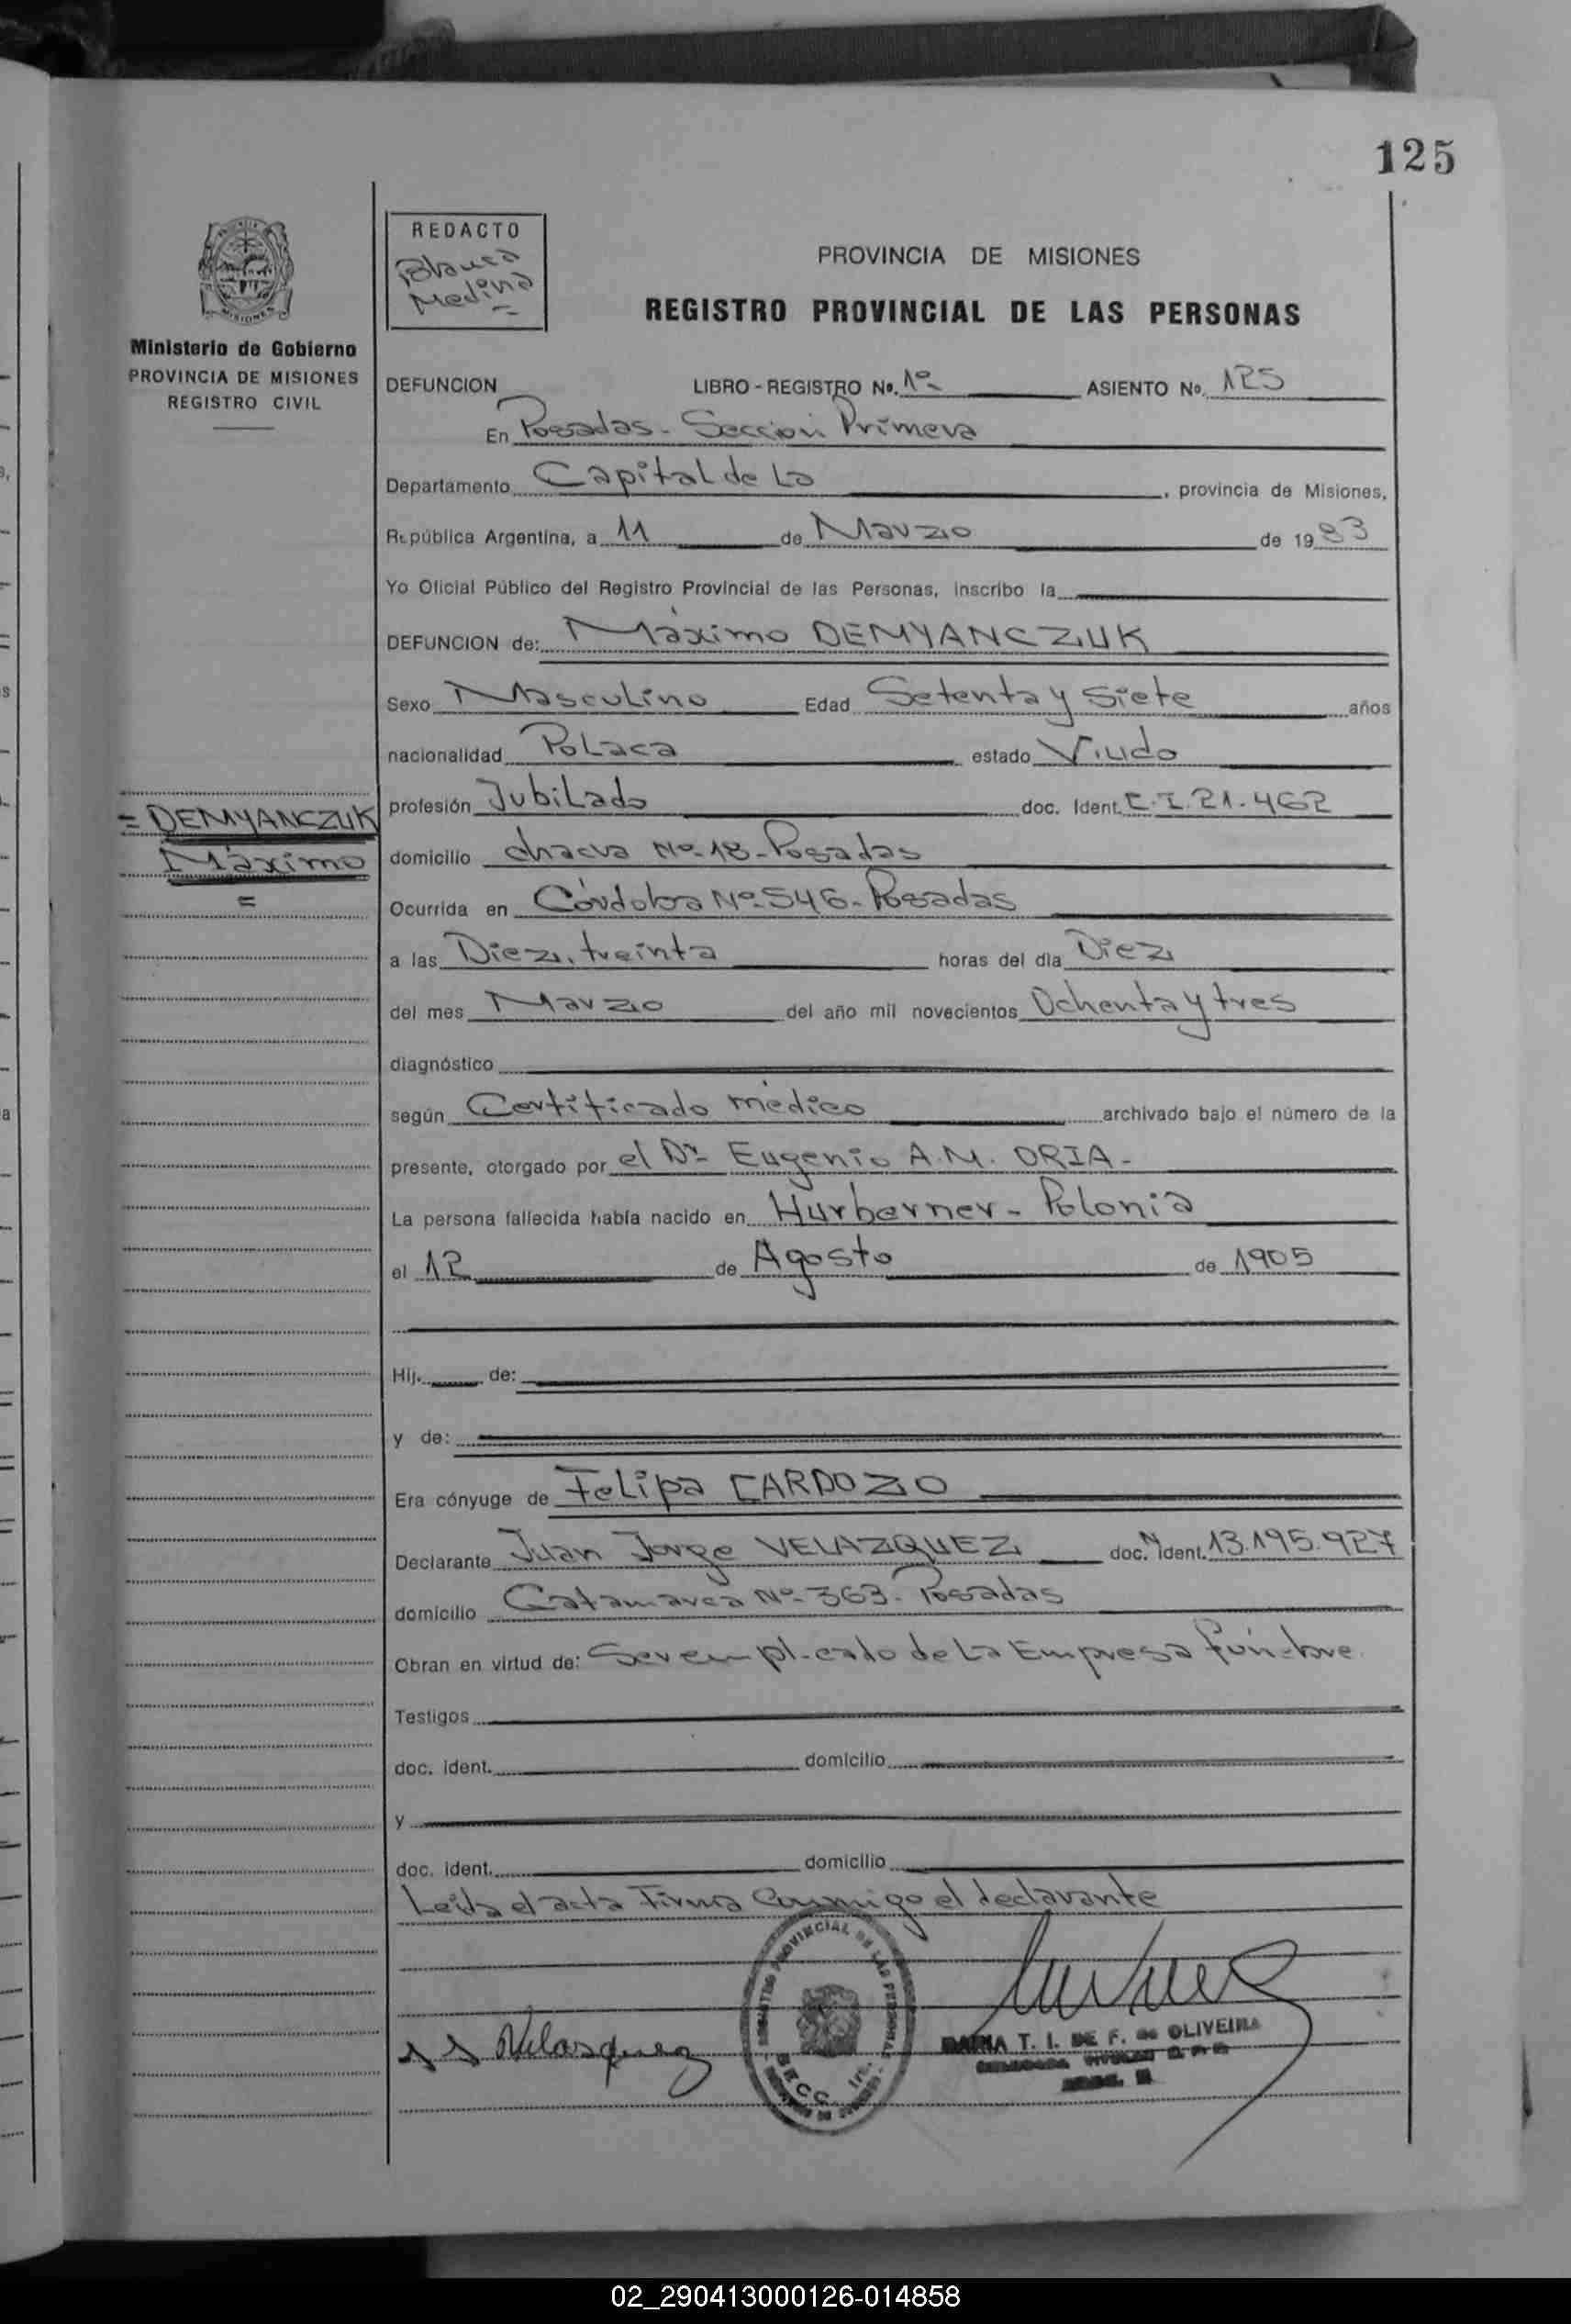 125
REDACTO
Blanca
Medina
PROVINCIA DE MISIONES
REGISTRO PROVINCIAL DE LAS PERSONAS
MISIONES
Ministerio de Gobierno
PROVINCIA DE MISIONES
REGISTRO CIVIL
DEFUNCION LIBRO - REGISTRO No. 1º ASIENTO No. 125
En Posadas - Sección Primera
Departamento Capital de La, provincia de Misiones,
República Argentina, a 11 de Marzo de 1983
Yo Oficial Público del Registro Provincial de las Personas, inscribo la
DEFUNCION de: Máximo DEMYANCZUK
Sexo Masculino Edad Setenta y Siete años
nacionalidad Polaca estado Viudo
= DEMYANCZUK
Máximo
=
profesión Jubilado doc. Ident. C.I. 21.462
domicilio chacra Nº 18 - Posadas
Ocurrida en Córdoba Nº 546 - Posadas
a las Diez, treinta horas del día Diez
del mes Marzo del año mil novecientos Ochenta y tres
diagnóstico
según Certificado médico archivado bajo el número de la
presente, otorgado por el Dr Eugenio A.M. ORIA -
La persona fallecida había nacido en Hurberner - Polonia
el 12 de Agosto de 1905
Hij. de:
y de:
Era cónyuge de Felipa CARDOZO
Declarante Juan Jorge VELAZQUEZ doc. ident. 13.195.927
domicilio Catamarca Nº 363 - Posadas
Obran en virtud de: Ser empleado de La Empresa fúnebre.
Testigos
doc. ident. domicilio
y
doc. ident. domicilio
Leída el acta Firma Conmigo el declarante
REGISTRO PROVINCIAL DE LAS PERSONAS
Velasquez
MARIA T. I. DE F. de OLIVEIRA
02_290413000126-014858